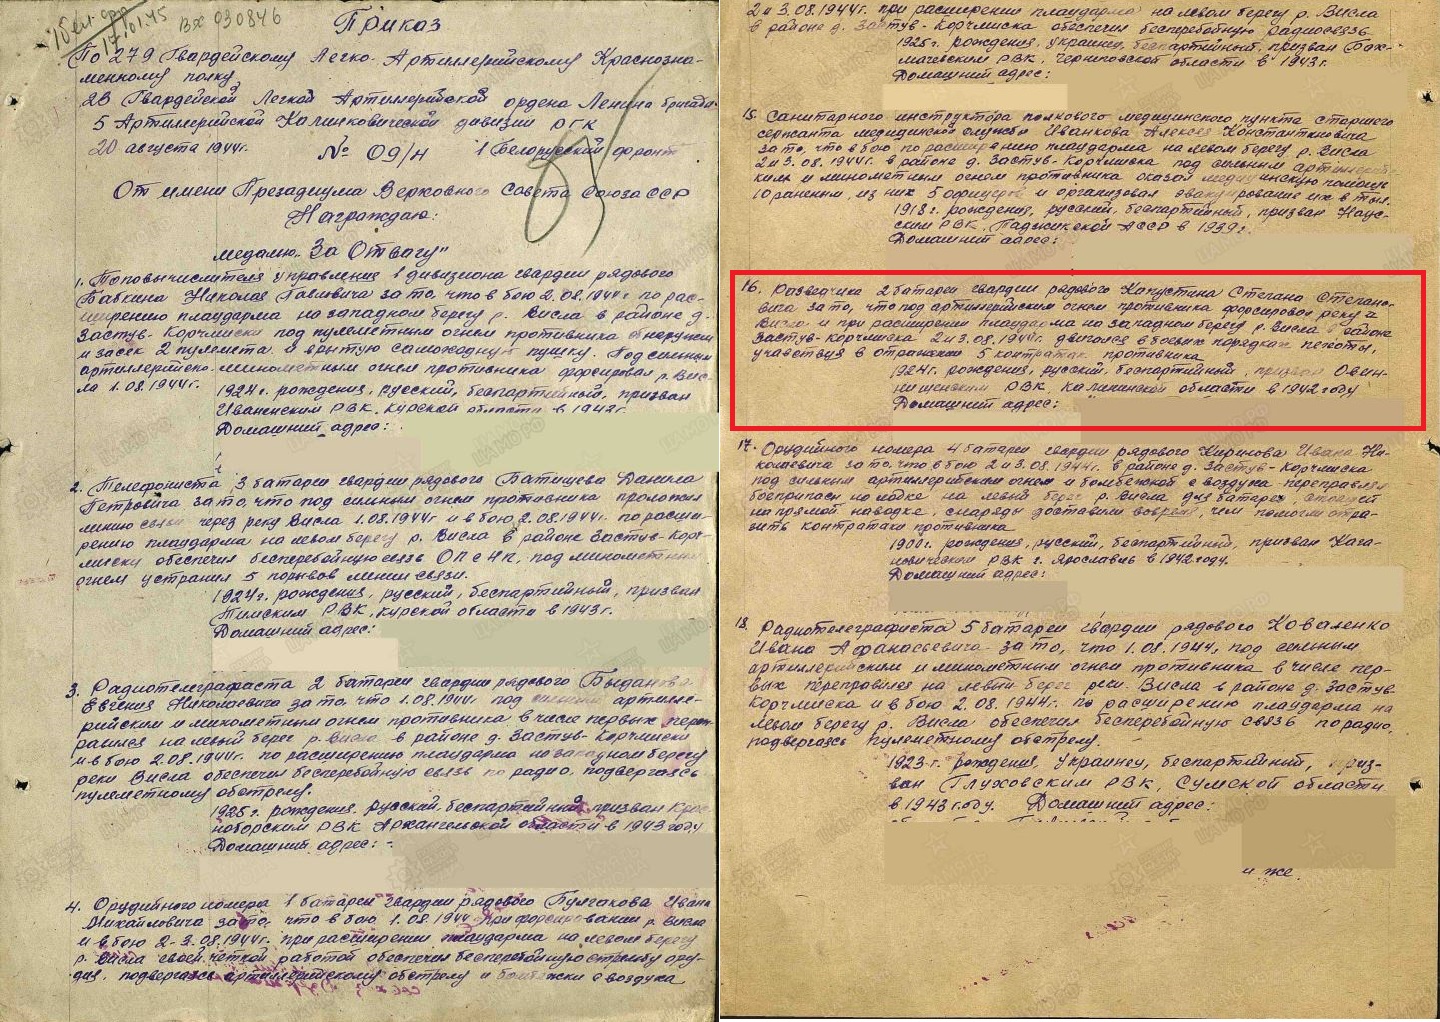 10 вл. орд
17.01.45
Вх 030846
Приказ
По 279 Гвардейскому Легко-Артиллерийскому Краснозна-
менному полку
28 Гвардейской Легкой Артиллерийской ордена Ленина бригады
5 Артиллерийской Калинковической дивизии РГК
20 августа 1944г. № 09/н 1 Белорусский фронт
От имени Презадиума Верховного Совета Союза ССР
Награждаю:
медалью „За Отвагу"
1. Топовычислителя управления 1 дивизиона гвардии рядового
Бабкина Николая Павловича за то, что в бою 2.08.1944г. по рас-
ширению плацдарма на западном берегу р. Висла в районе д.
Застув-Корчмиски под пулеметным огнем противника обнаружил
и засек 2 пулемета и врытую самоходную пушку. Под сильным
артиллерийско-минометным огнем противника форсировал р. Вис-
ла 1.08.1944г.
1924г. рождения, русский, беспартийный, призван
Иванинским РВК, Курской области в 1942г.
Домашний адрес:
2. Телефониста 3 батареи гвардии рядового Батищева Данила
Петровича за то, что под сильным огнем противника проложил
линию связи через реку Висла 1.08.1944г и в бою 2.08.1944г. по расши-
рению плацдарма на левом берегу р. Висла в районе Застув-Корч-
миски обеспечил бесперебойную связь ОП с НП, под минометным
огнем устранил 5 порывов линии связи.
1924г. рождения, русский, беспартийный, призван
Тимским РВК, Курской области в 1943г.
Домашний адрес:
3. Радиотелеграфиста 2 батареи гвардии рядового
Евгения Николаевича за то, что 1.08.1944г. под сильным артилле-
рийским и минометным огнем противника в числе первых переп-
равился на левый берег р. Висла в районе д. Застув-Корчмиски
и в бою 2.08.1944г. по расширению плацдарма на западном берегу
реки Висла обеспечил бесперебойную связь по радио, подвергаясь
пулеметному обстрелу.
1925г. рождения, русский, беспартийный, призван Крас-
ноборским РВК Архангельской области в 1943 году
Домашний адрес: -
4. Орудийного номера 1 батареи гвардии рядового Булгакова Ивана
Михайловича за то, что в бою 1.08.1944 при форсировании р. Висла
и в бою 2-3.08.1944г. при расширении плацдарма на левом берегу
р. Висла своей четкой работой обеспечил бесперебойную стрельбу ору-
дия, подвергаясь артиллерийскому обстрелу и бомбежки с воздуха
2 и 3.08.1944г. при расширении плацдарма на левом берегу р. Висла
в районе д. Застув-Корчмиска обеспечил бесперебойную радиосвязь
1925г. рождения, украинец, беспартийный, призван Бах-
мачевским РВК, Черниговской области в 1943г.
Домашний адрес:
15. Санитарного инструктора полкового медицинского пункта старшего
сержанта медицинской службы Иванкова Алексея Константиновича
за то, что в бою по расширению плацдарма на левом берегу р. Висла
2 и 3.08.1944г. в районе д. Застув-Корчмиска под сильным артиллерийс-
ким и минометным огнем противника оказал медицинскую помощь
10 раненым, из них 5 офицеров и организовал эвакуирование их в тыл.
1918г. рождения, русский, беспартийный, призван
ским РВК, Таджикской АССР в 1939г.
Домашний адрес:
16. Разведчика 2 батареи гвардии рядового Капустина Степана Степано-
вича за то, что под артиллерийским огнем противника форсировал реку
Висла и при расширении плацдарма на западном берегу р. Висла в районе
Застув-Корчмиска 2 и 3.08.1944г. двигался в боевых порядках пехоты,
учавствуя в отражении 5 контратак противника
1924г. рождения, русский, беспартийный, призван Овин-
нишенским РВК, Калининской области в 1942 году
Домашний адрес:
17. Орудийного номера 4 батареи гвардии рядового Кирилова Ивана Ни-
колаевича за то, что в бою 2 и 3.08.1944г. в районе д. Застув-Корчмиска
под сильным артиллерийским огнем и бомбежкой с воздуха переправлял
боеприпасы на лодке на левый берег р. Висла для батареи, стоящей
на прямой наводке, снаряды доставили вовремя, чем помогли отра-
зить контратаки противника
1900г. рождения, русский, беспартийный, призван Кага-
новическим РВК г. Ярославль в 1942 году.
Домашний адрес:
18. Радиотелеграфиста 5 батареи гвардии рядового Коваленко
Ивана Афанасьевича за то, что 1.08.1944г. под сильным
артиллерийским и минометным огнем противника в числе пер-
вых переправился на левый берег реки Висла в районе д. Застув-
Корчмиска и в бою 2.08.1944г. по расширению плацдарма на
левом берегу р. Висла обеспечил бесперебойную связь по радио,
подвергаясь пулеметному обстрелу.
1923г. рождения, украинец, беспартийный, приз-
ван Глуховским РВК, Сумской области
в 1943 году. Домашний адрес:
и же.